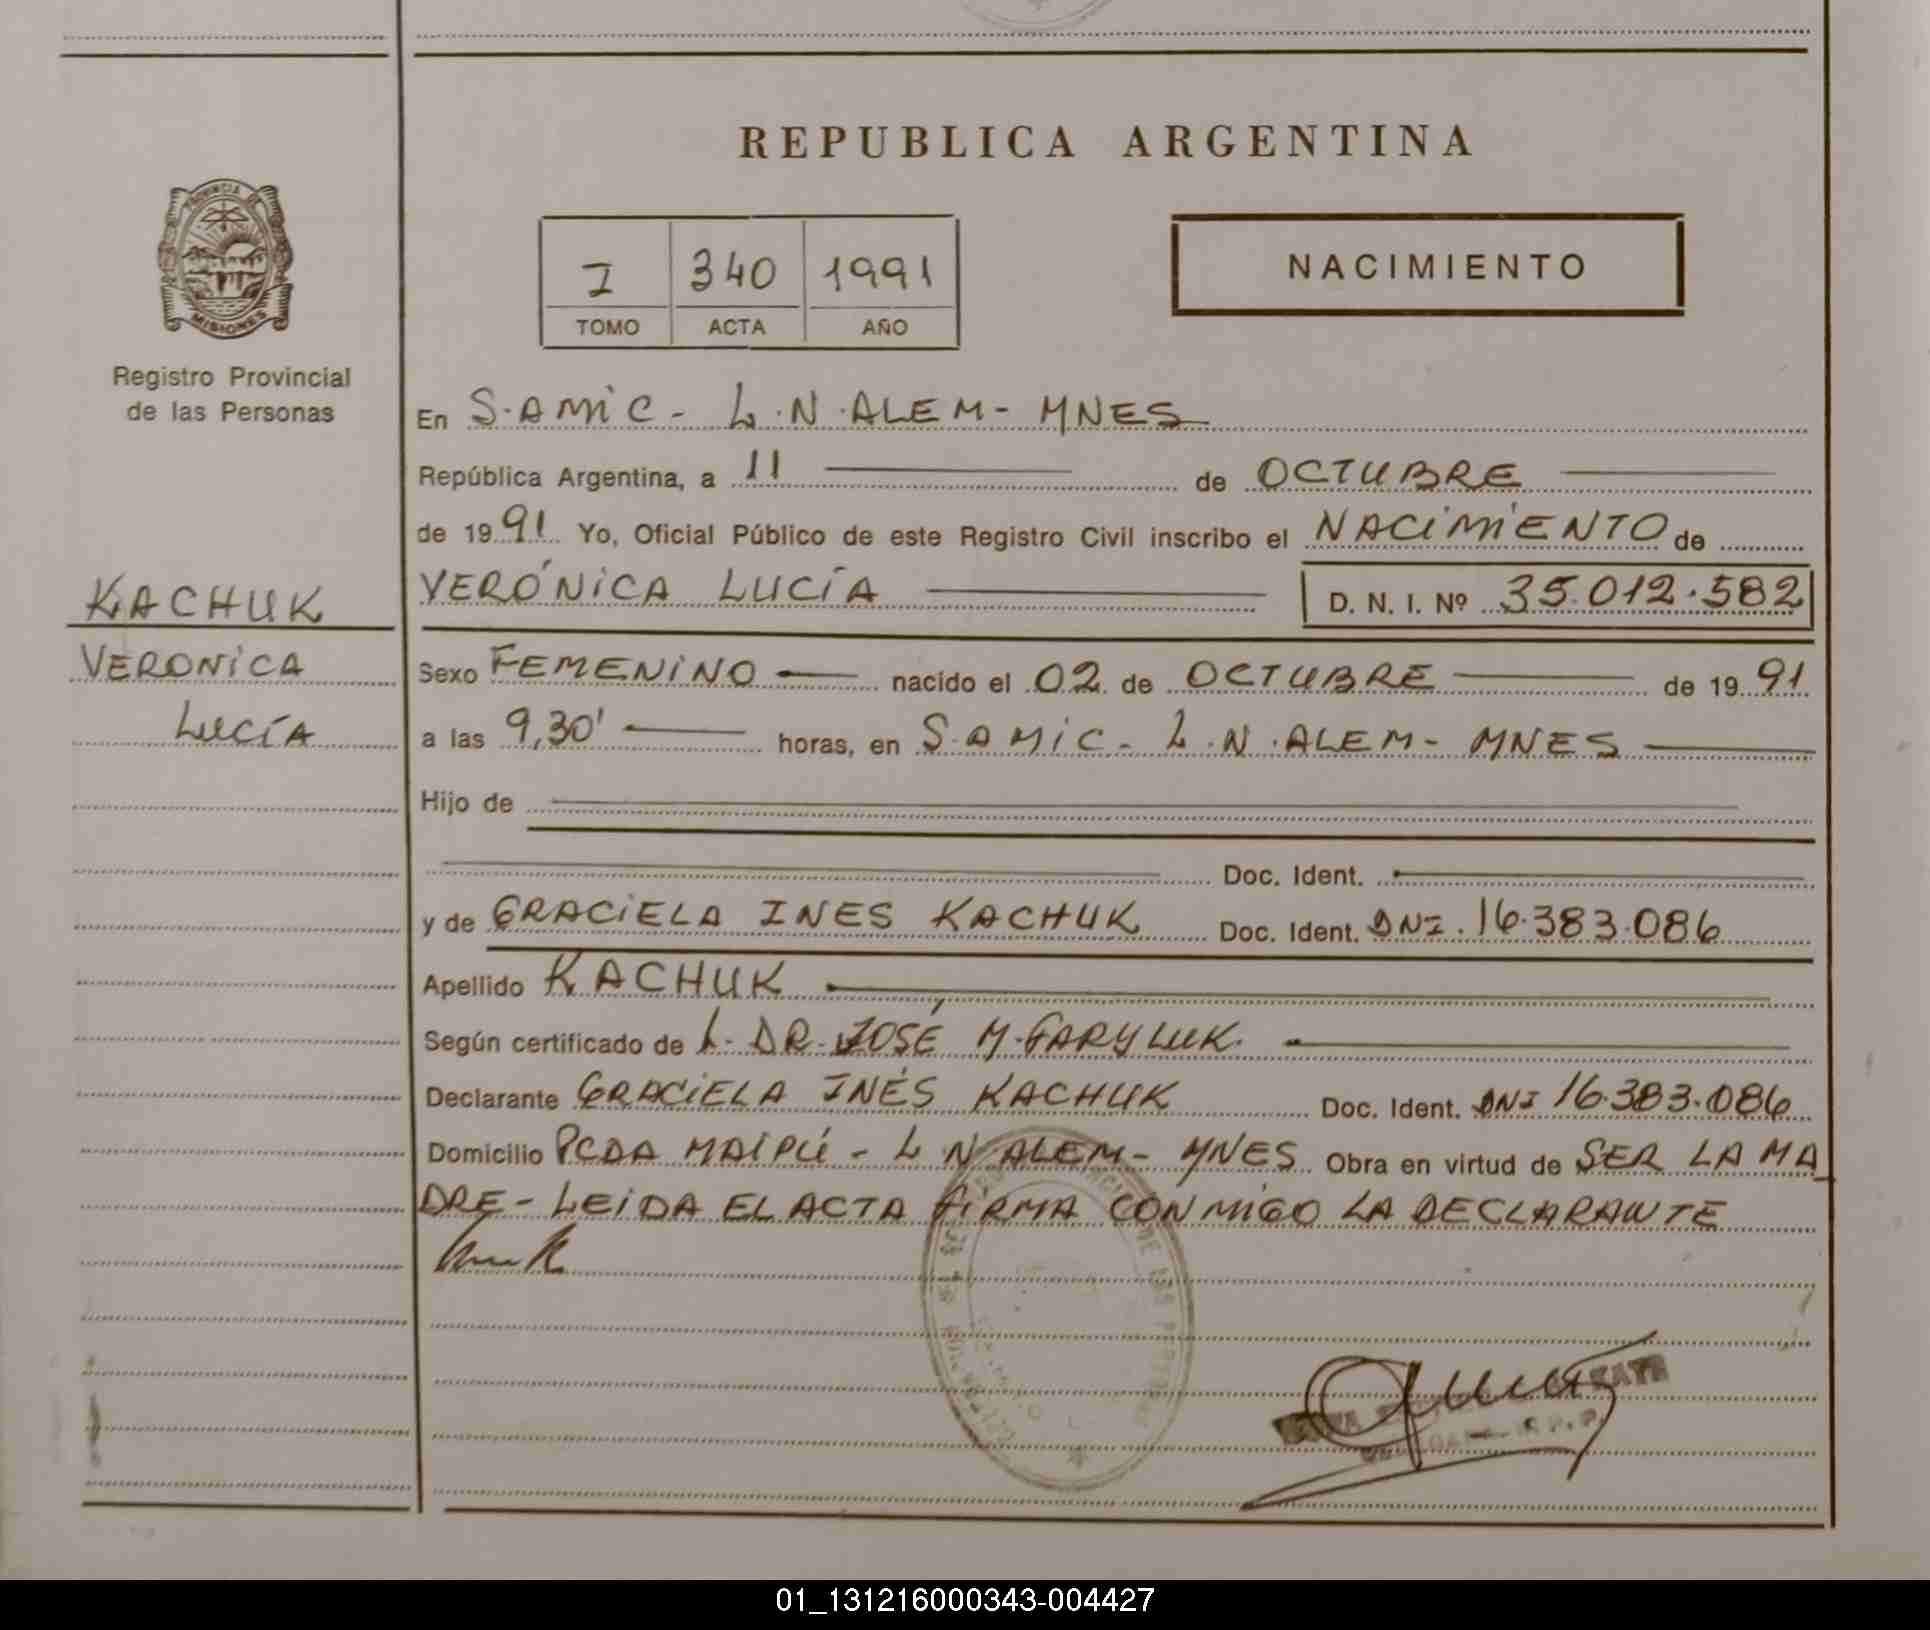 REPUBLICA ARGENTINA
PROVINCIA DE
MISIONES
Registro Provincial
de las Personas
I 340 1991
TOMO ACTA AÑO
NACIMIENTO
En S.AMIC - L.N.ALEM - MNES
República Argentina, a 11 de OCTUBRE
de 1991 Yo, Oficial Público de este Registro Civil inscribo el NACIMIENTO de
KACHUK
VERÓNICA LUCÍA D. N. I. Nº 35.012.582
VERONICA
LUCÍA
Sexo FEMENINO nacido el 02 de OCTUBRE de 1991
a las 9,30' horas, en S.AMIC - L.N.ALEM - MNES
Hijo de
Doc. Ident.
y de GRACIELA INES KACHUK Doc. Ident. DNI. 16.383.086
Apellido KACHUK
Según certificado de L. DR. JOSÉ M. GARYLUK.
Declarante GRACIELA INÉS KACHUK Doc. Ident. DNI 16.383.086
Domicilio PCDA MAIPÚ - L N ALEM - MNES Obra en virtud de SER LA MA
DRE - LEIDA EL ACTA FIRMA CONMIGO LA DECLARANTE
01_131216000343-004427